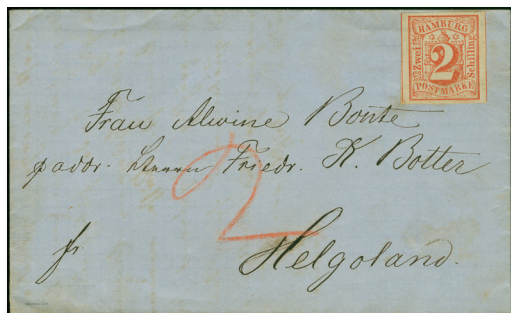 HAMBURG
Zwei
2
Schilling
POSTMARKE
Frau Alwine Bonte
p addr. Herrn Friedr. K. Botter
2
fr.
Helgoland.